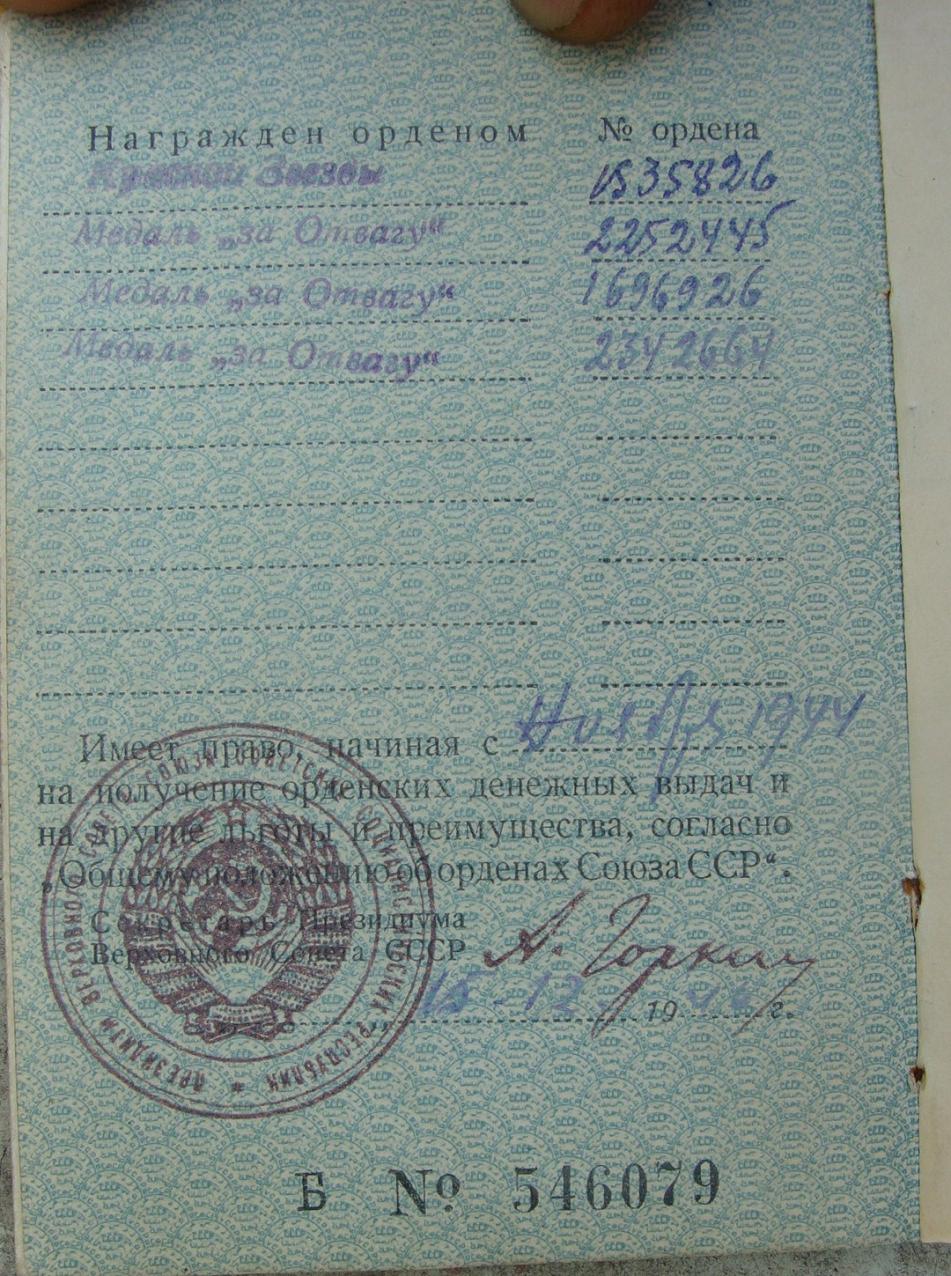 Награжден орденом № ордена
Красной Звезды 1535826
Медаль „за Отвагу“ 2252445
Медаль „за Отвагу“ 1696926
Медаль „за Отвагу“ 2342664
Имеет право, начиная с Ноября 1944
на получение орденских денежных выдач и
на другие льготы и преимущества, согласно
„Общему положению об орденах Союза ССР“.
Секретарь Президиума
Верховного Совета СССР А. Горкин
15-12 19 г.
ПРЕЗИДИУМ ВЕРХОВНОГО СОВЕТА СОЮЗА СОВЕТСКИХ СОЦИАЛИСТИЧЕСКИХ РЕСПУБЛИК
Б № 546079